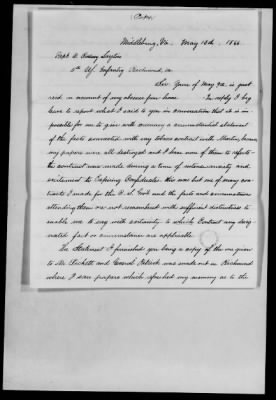 Copy.
Middleburg, Va. May 10th, 1866
Capt. A. Rodney
5th U.S. Infantry Richmond, Va
Sir Yours of May 9th, is just
recd. in account of my absence from home In reply I beg
leave to report what I said to you in conversation that it is im-
possible for me to give with accuracy a circumstantial statement
of the facts connected with my tobacco contract with Martin, because
my papers were all destroyed and I have none of them to refer to
the contract was made during a time of intense anxiety and
excitement to Expiring Confederates this was but one of many con-
tracts I made for the C. S. Govt and the facts and circumstances
attending them are not remembered with sufficient distinctness to
enable me to say with certainty to which Contract any desig-
nated fact or circumstance are applicable.
The Statement I furnished you being a copy of the one given
to Mr. and General was made out in Richmond
where I saw papers which refreshed my memory as to the